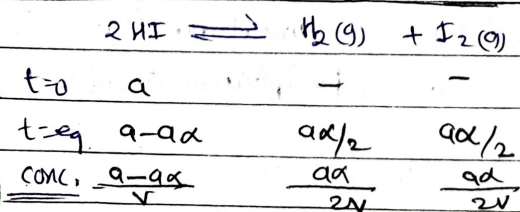 2HI ⇌ H2(g) + I2(g)
t=0 a - -
t=eq a-aα aα/2 aα/2
conc. a-aα/V aα/2V aα/2V